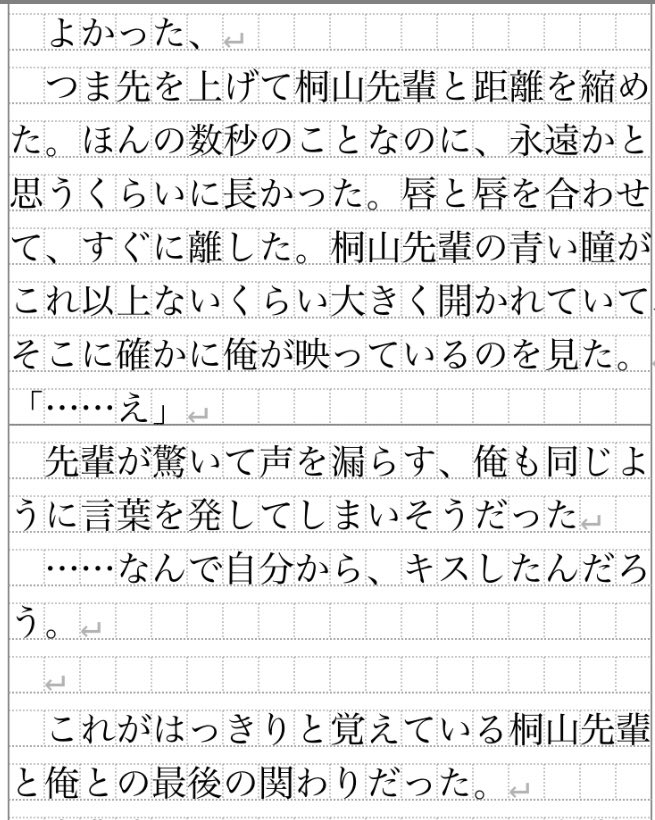 よかった、
つま先を上げて桐山先輩と距離を縮め
た。ほんの数秒のことなのに、永遠かと
思うくらいに長かった。唇と唇を合わせ
て、すぐに離した。桐山先輩の青い瞳が
これ以上ないくらい大きく開かれていて
そこに確かに俺が映っているのを見た。
「……え」
先輩が驚いて声を漏らす、俺も同じよ
うに言葉を発してしまいそうだった
……なんで自分から、キスしたんだろ
う。
これがはっきりと覚えている桐山先輩
と俺との最後の関わりだった。